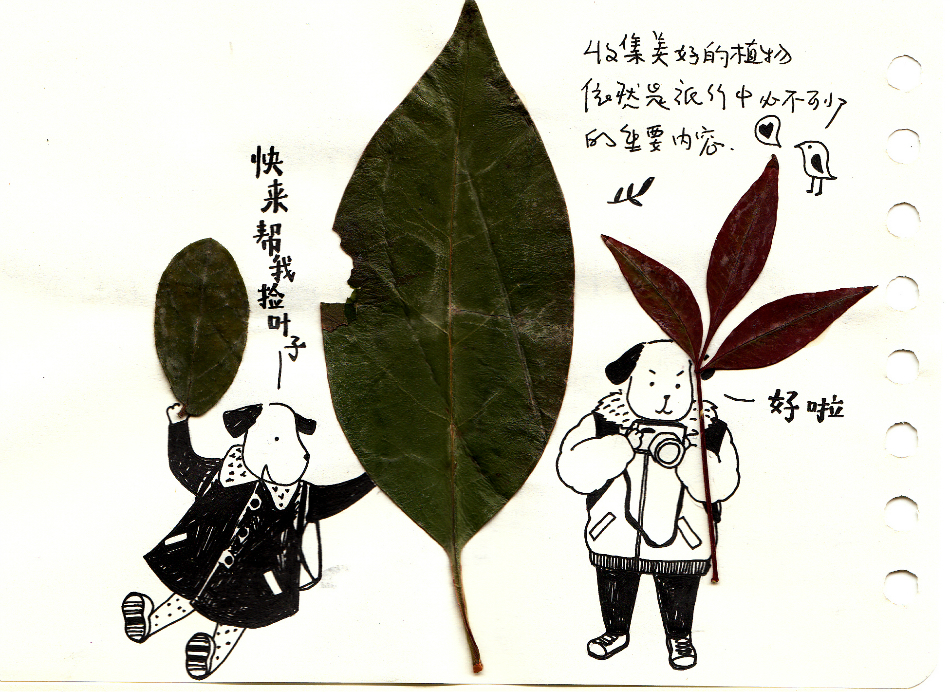 收集美好的植物
依然是旅行中必不可少
的重要内容.
快来帮我捡叶子
好啦